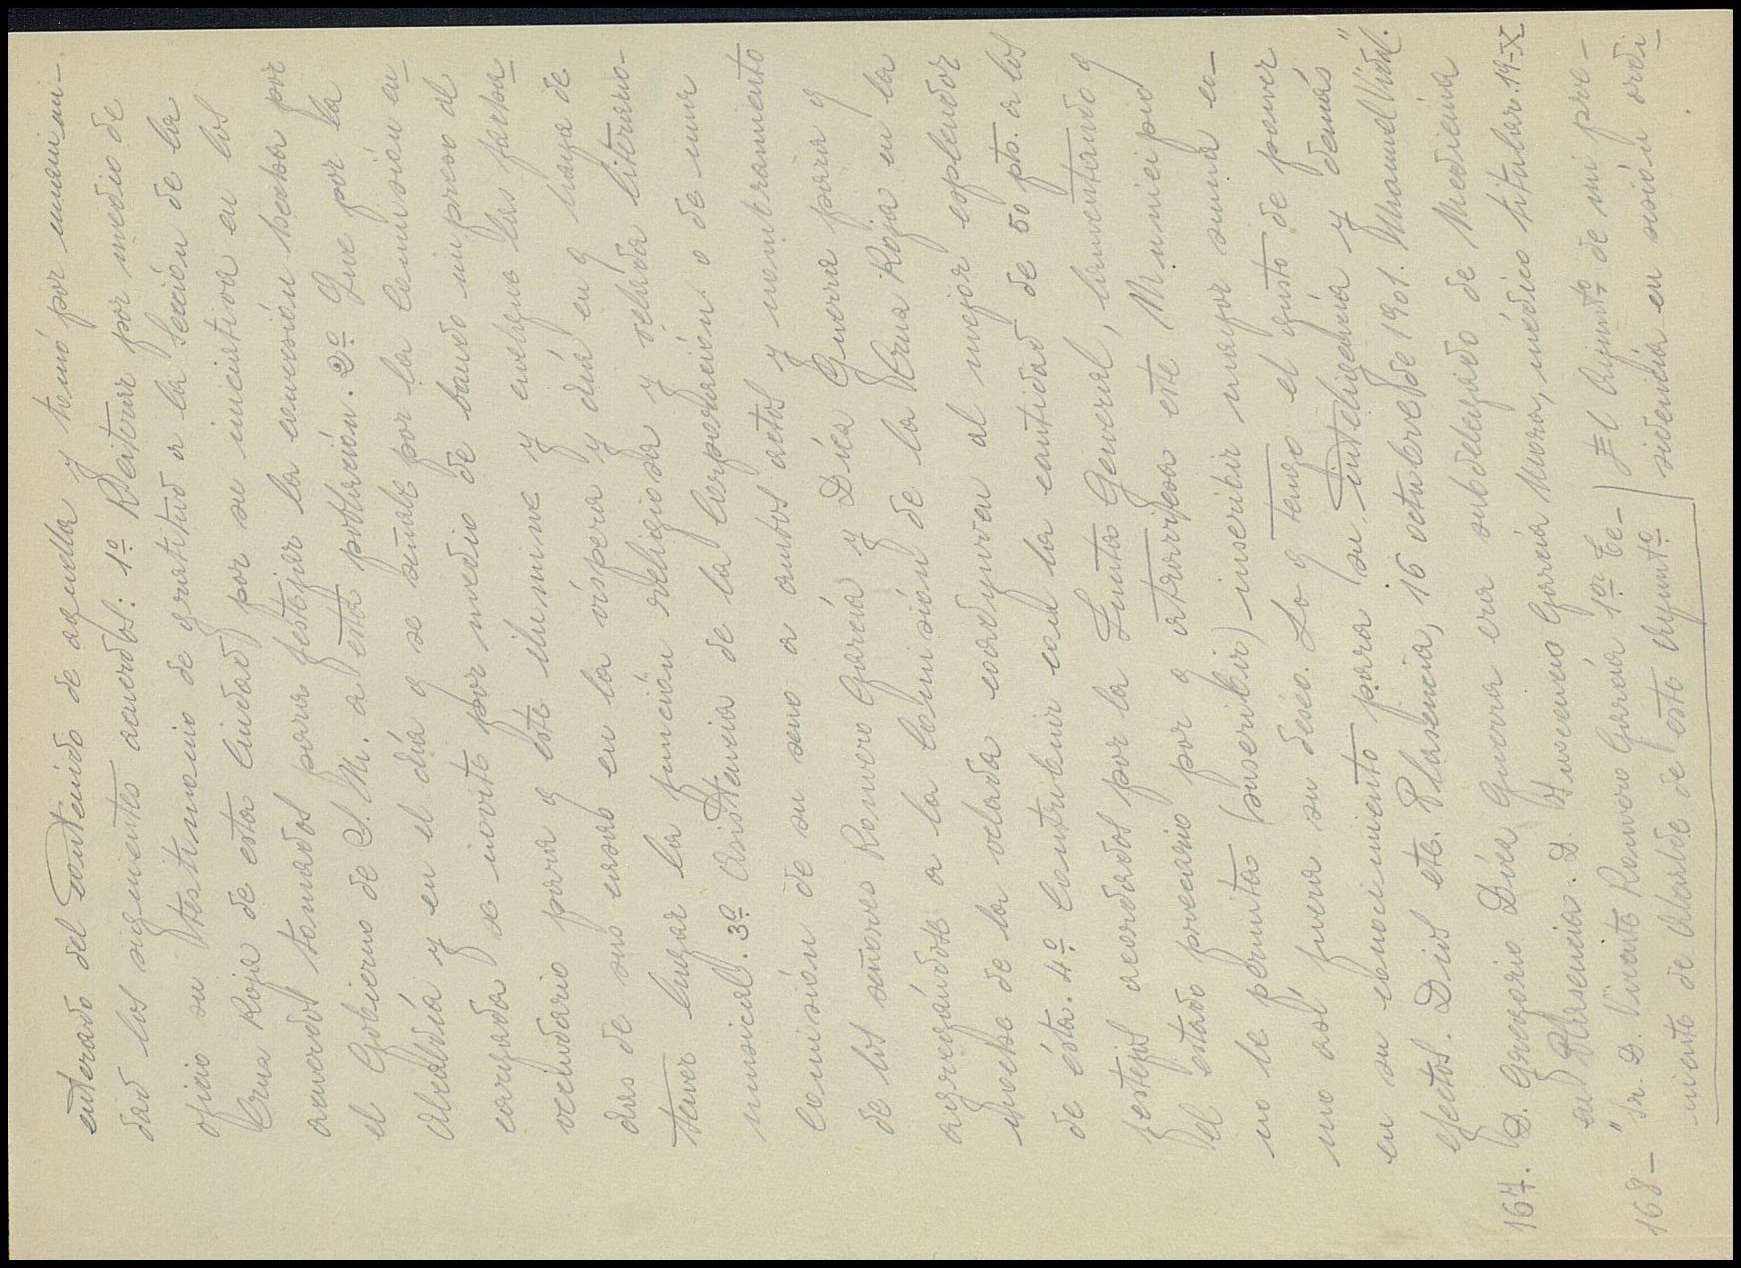 enterado del contenido de aquella y tomó por unanimi-
dad los siguientes acuerdos: 1º Reiterar por medio de
oficio su testimonio de gratitud a la Sección de la
Cruz Roja de esta Ciudad, por su iniciativa en los
acuerdos tomados para festejar la concesión hecha por
el Gobierno de S. M. a esta población. 2º Que por la
Alcaldía y en el día q se señale por la Comisión en-
cargada se invite por medio de bando impreso al
vecindario para q éste ilumine y engalane las facha-
das de sus casas en la víspera y día en q haya de
tener lugar la función religiosa y velada literario-
musical. 3º Asistencia de la Corporación o de una
Comisión de su seno a ambos actos y nombramiento
de los señores Romero García y Díez Guerra para q
agregándose a la Comisión de la Cruz Roja en la
noche de la velada coadyuven al mejor esplendor
de ésta. 4º Contribuir con la cantidad de 50 pts. a los
festejos acordados por la Junta General, lamentando q
el estado precario por q atraviesa este Municipio
no le permita (suscribir) inscribir mayor suma co-
mo así fuera su deseo. Lo q tengo el gusto de poner
en su conocimiento para su inteligencia y demás
efectos. Dios etc. Plasencia, 16 octubre de 1901. Manuel Vidal."
167. D. Gregorio Díez Guerra era subdelegado de Medicina
en Plasencia. D. Inocencio García Mora, médico titular. 19-X
168- "Sr. D. Vicente Romero García 1er Te-
niente de Alcalde de este Ayuntº
El Ayuntº de mi pre-
sidencia en sesión ordi-